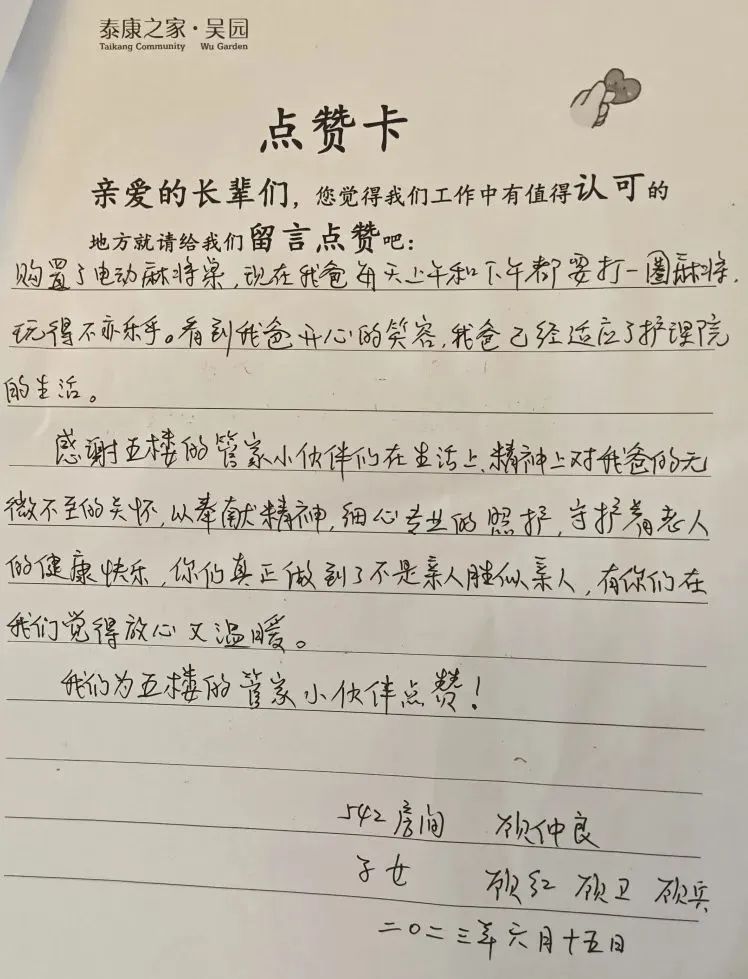 泰康之家·吴园
Taikang Community Wu Garden
点赞卡
亲爱的长辈们，您觉得我们工作中有值得认可的
地方就请给我们留言点赞吧：
购置了电动麻将桌，现在我爸每天上午和下午都要打一圈麻将，
玩得不亦乐乎。看到我爸开心的笑容，我爸已经适应了护理院
的生活。
感谢五楼的管家小伙伴们在生活上、精神上对我爸的无
微不至的关怀，以奉献精神，细心专业的照护，守护着老人
的健康快乐，你们真正做到了不是亲人胜似亲人，有你们在
我们觉得放心又温暖。
我们为五楼的管家小伙伴点赞！
542房间 顾仲良
子女 顾红 顾卫 顾兵
二〇二三年六月十五日